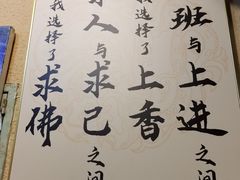 班与上进之间
我选择了上香
人与求己之间
我选择了求佛